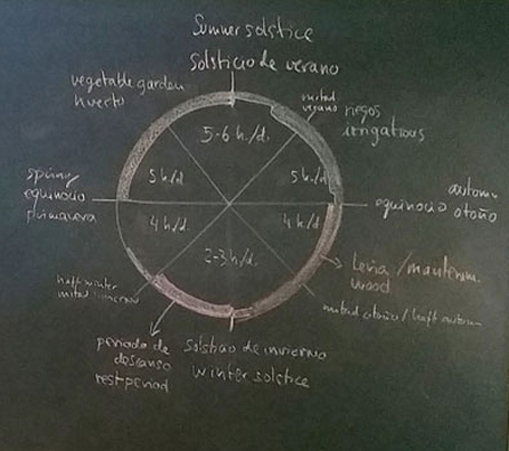 Summer solstice
Solsticio de verano
vegetable garden
huerto
mitad
verano
riegos
irrigations
5-6 h./d.
5 h/d.
5 h/d.
spring
equinocio
primavera
autumn
equinocio otoño
4 h/d.
4 h/d.
2-3 h/d.
leña / mantenim.
wood
half winter
mitad invierno
mitad otoño / half autumn
periodo de
descanso
rest period
solsticio de invierno
winter solstice